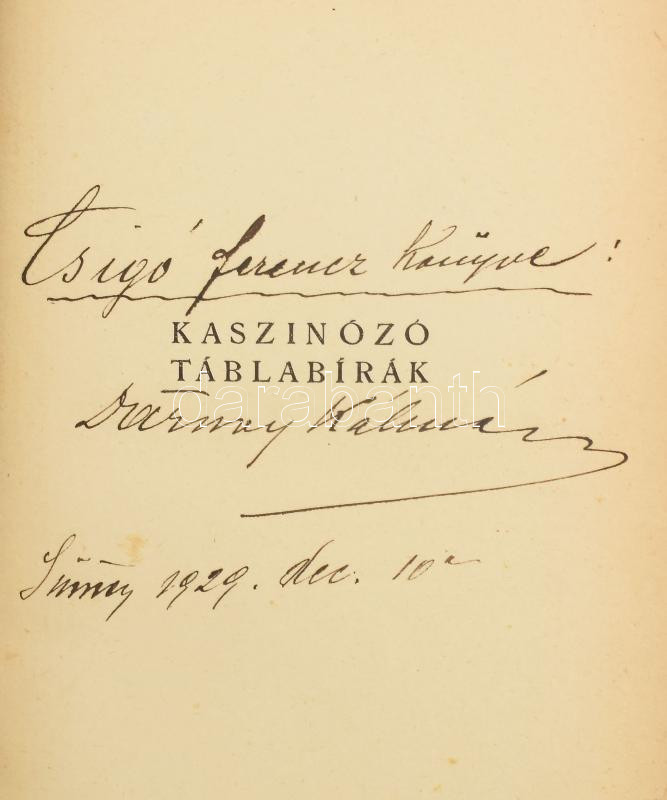 Csigó Ferencz Könyve:
KASZINÓZÓ
TÁBLABÍRÁK
darabanth
Darnay Kálmán
Sümeg 1929. dec. 10ᵃ